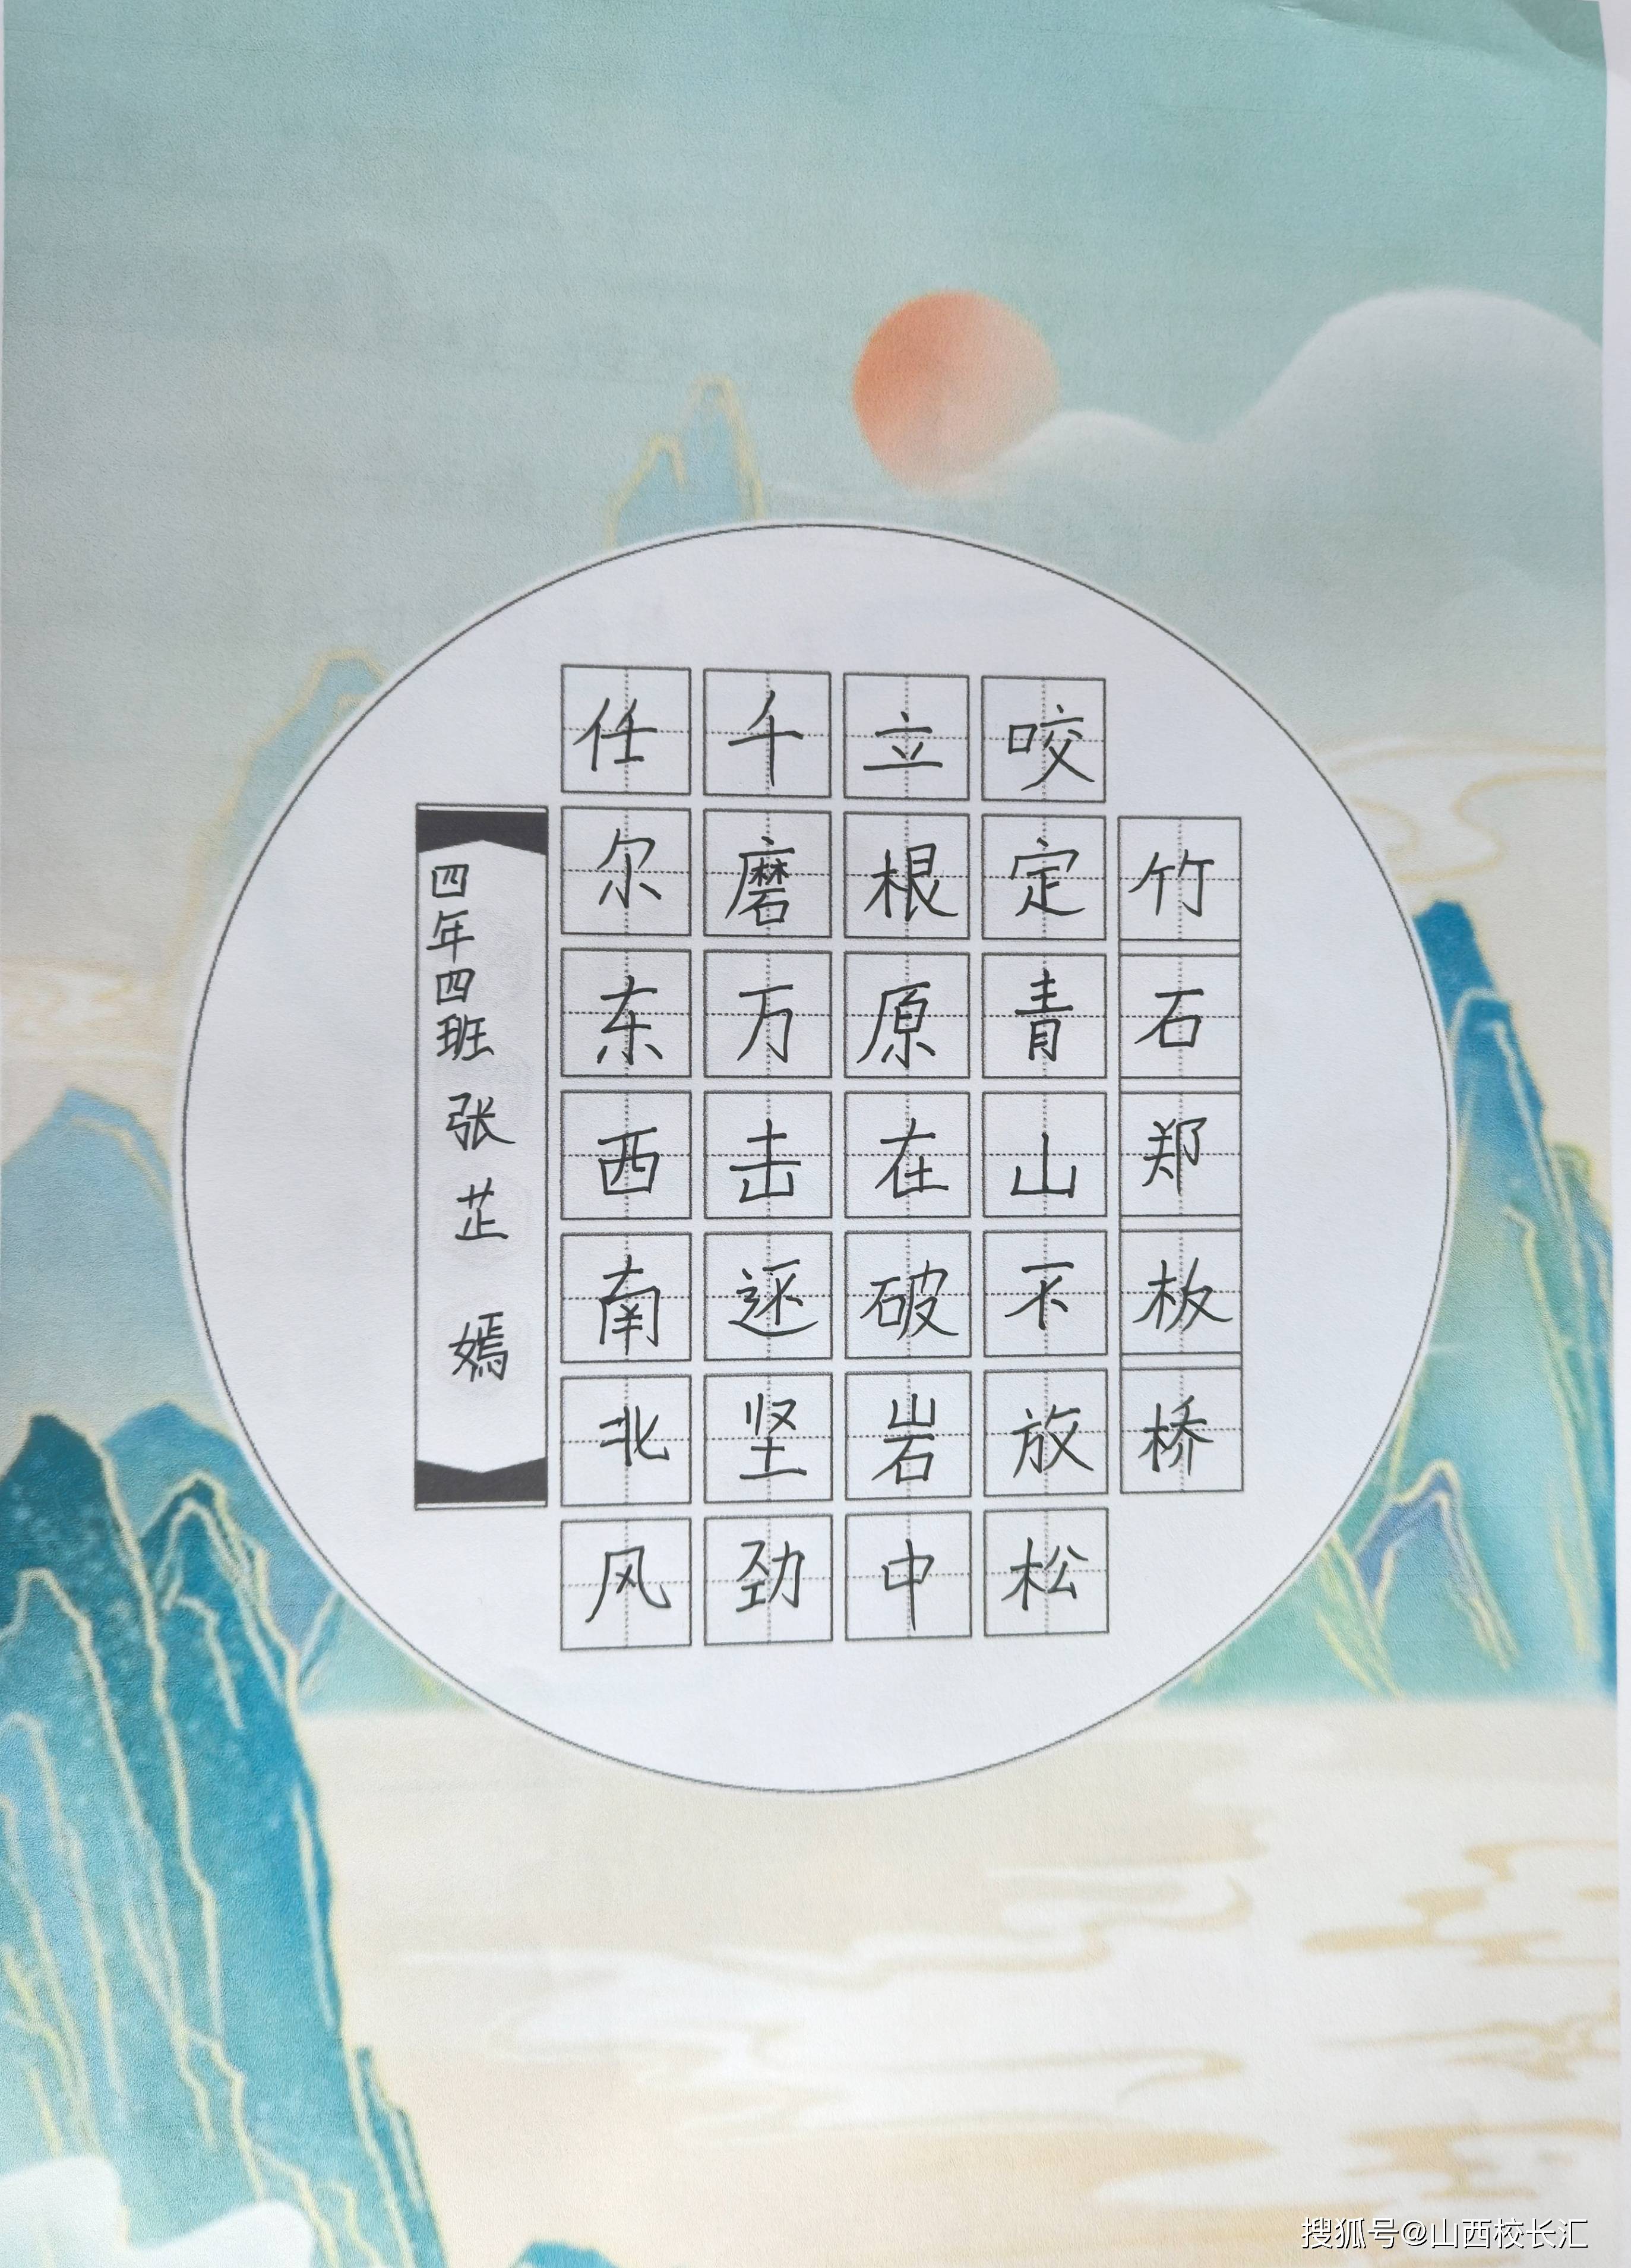 竹石郑板桥
咬定青山不放松
立根原在破岩中
千磨万击还坚劲
任尔东西南北风
四年四班 张芷嫣
搜狐号@山西校长汇